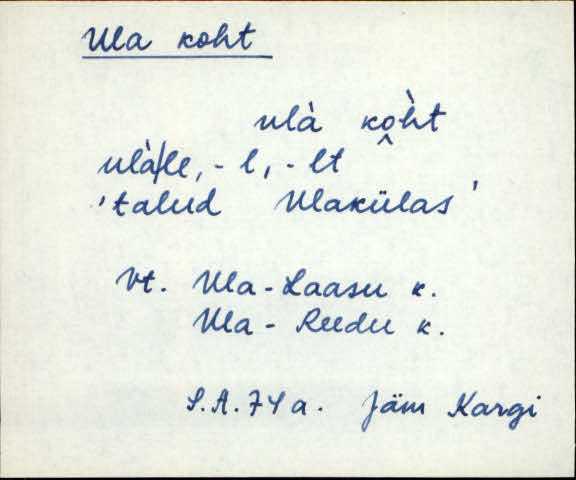 Ula koht
ulà ko̭h̀t
ulà/le, -l, -lt
'talud Ulakülas'
Vt. Ula-Laasu k.
Ula-Reedu k.
S.A.74a. Jäm Kargi